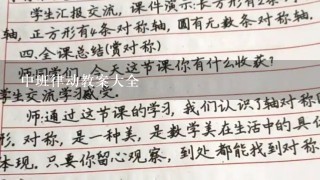 学生汇报交流,课件演示:长方形有2条对
轴,正方形有4条对称轴,圆有无数条对称轴.
四.全课总结(赏对称)
今天这节课你有什么收获?
中班律动教案大全
学生交流学习
师:通过这节课的学习,我们认识了轴对称图
形.对称,是一种美,是数学美在生活中的具体
体现.只要你留心观察,到处都能找到对称